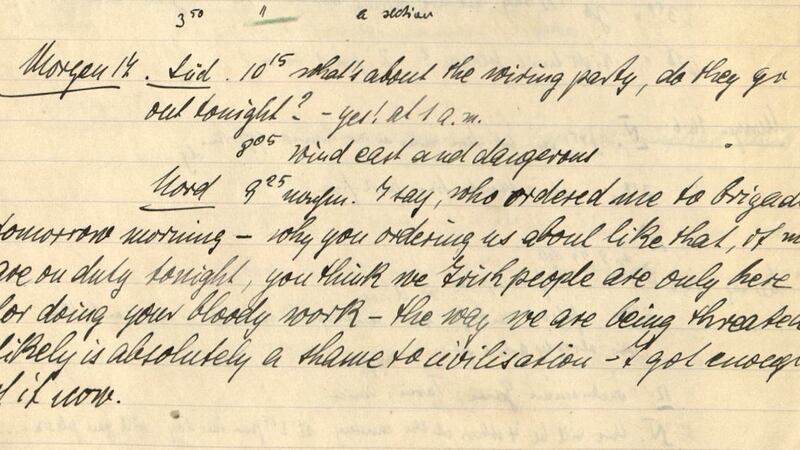 3 50 " a section
Morgen 17. Süd. 10 15 what's about the wiring party, do they go
out tonight? - yes! at 1 a.m.
8 05 wind east and dangerous
Nord 9 25 I say, who ordered me to Brigade
tomorrow morning - why you ordering us about like that, if
are on duty tonight, you think we Irish people are only here
for doing your bloody work - the way we are being threate
likely is absolutely a shame to civilisation - I got enoug
of it now.